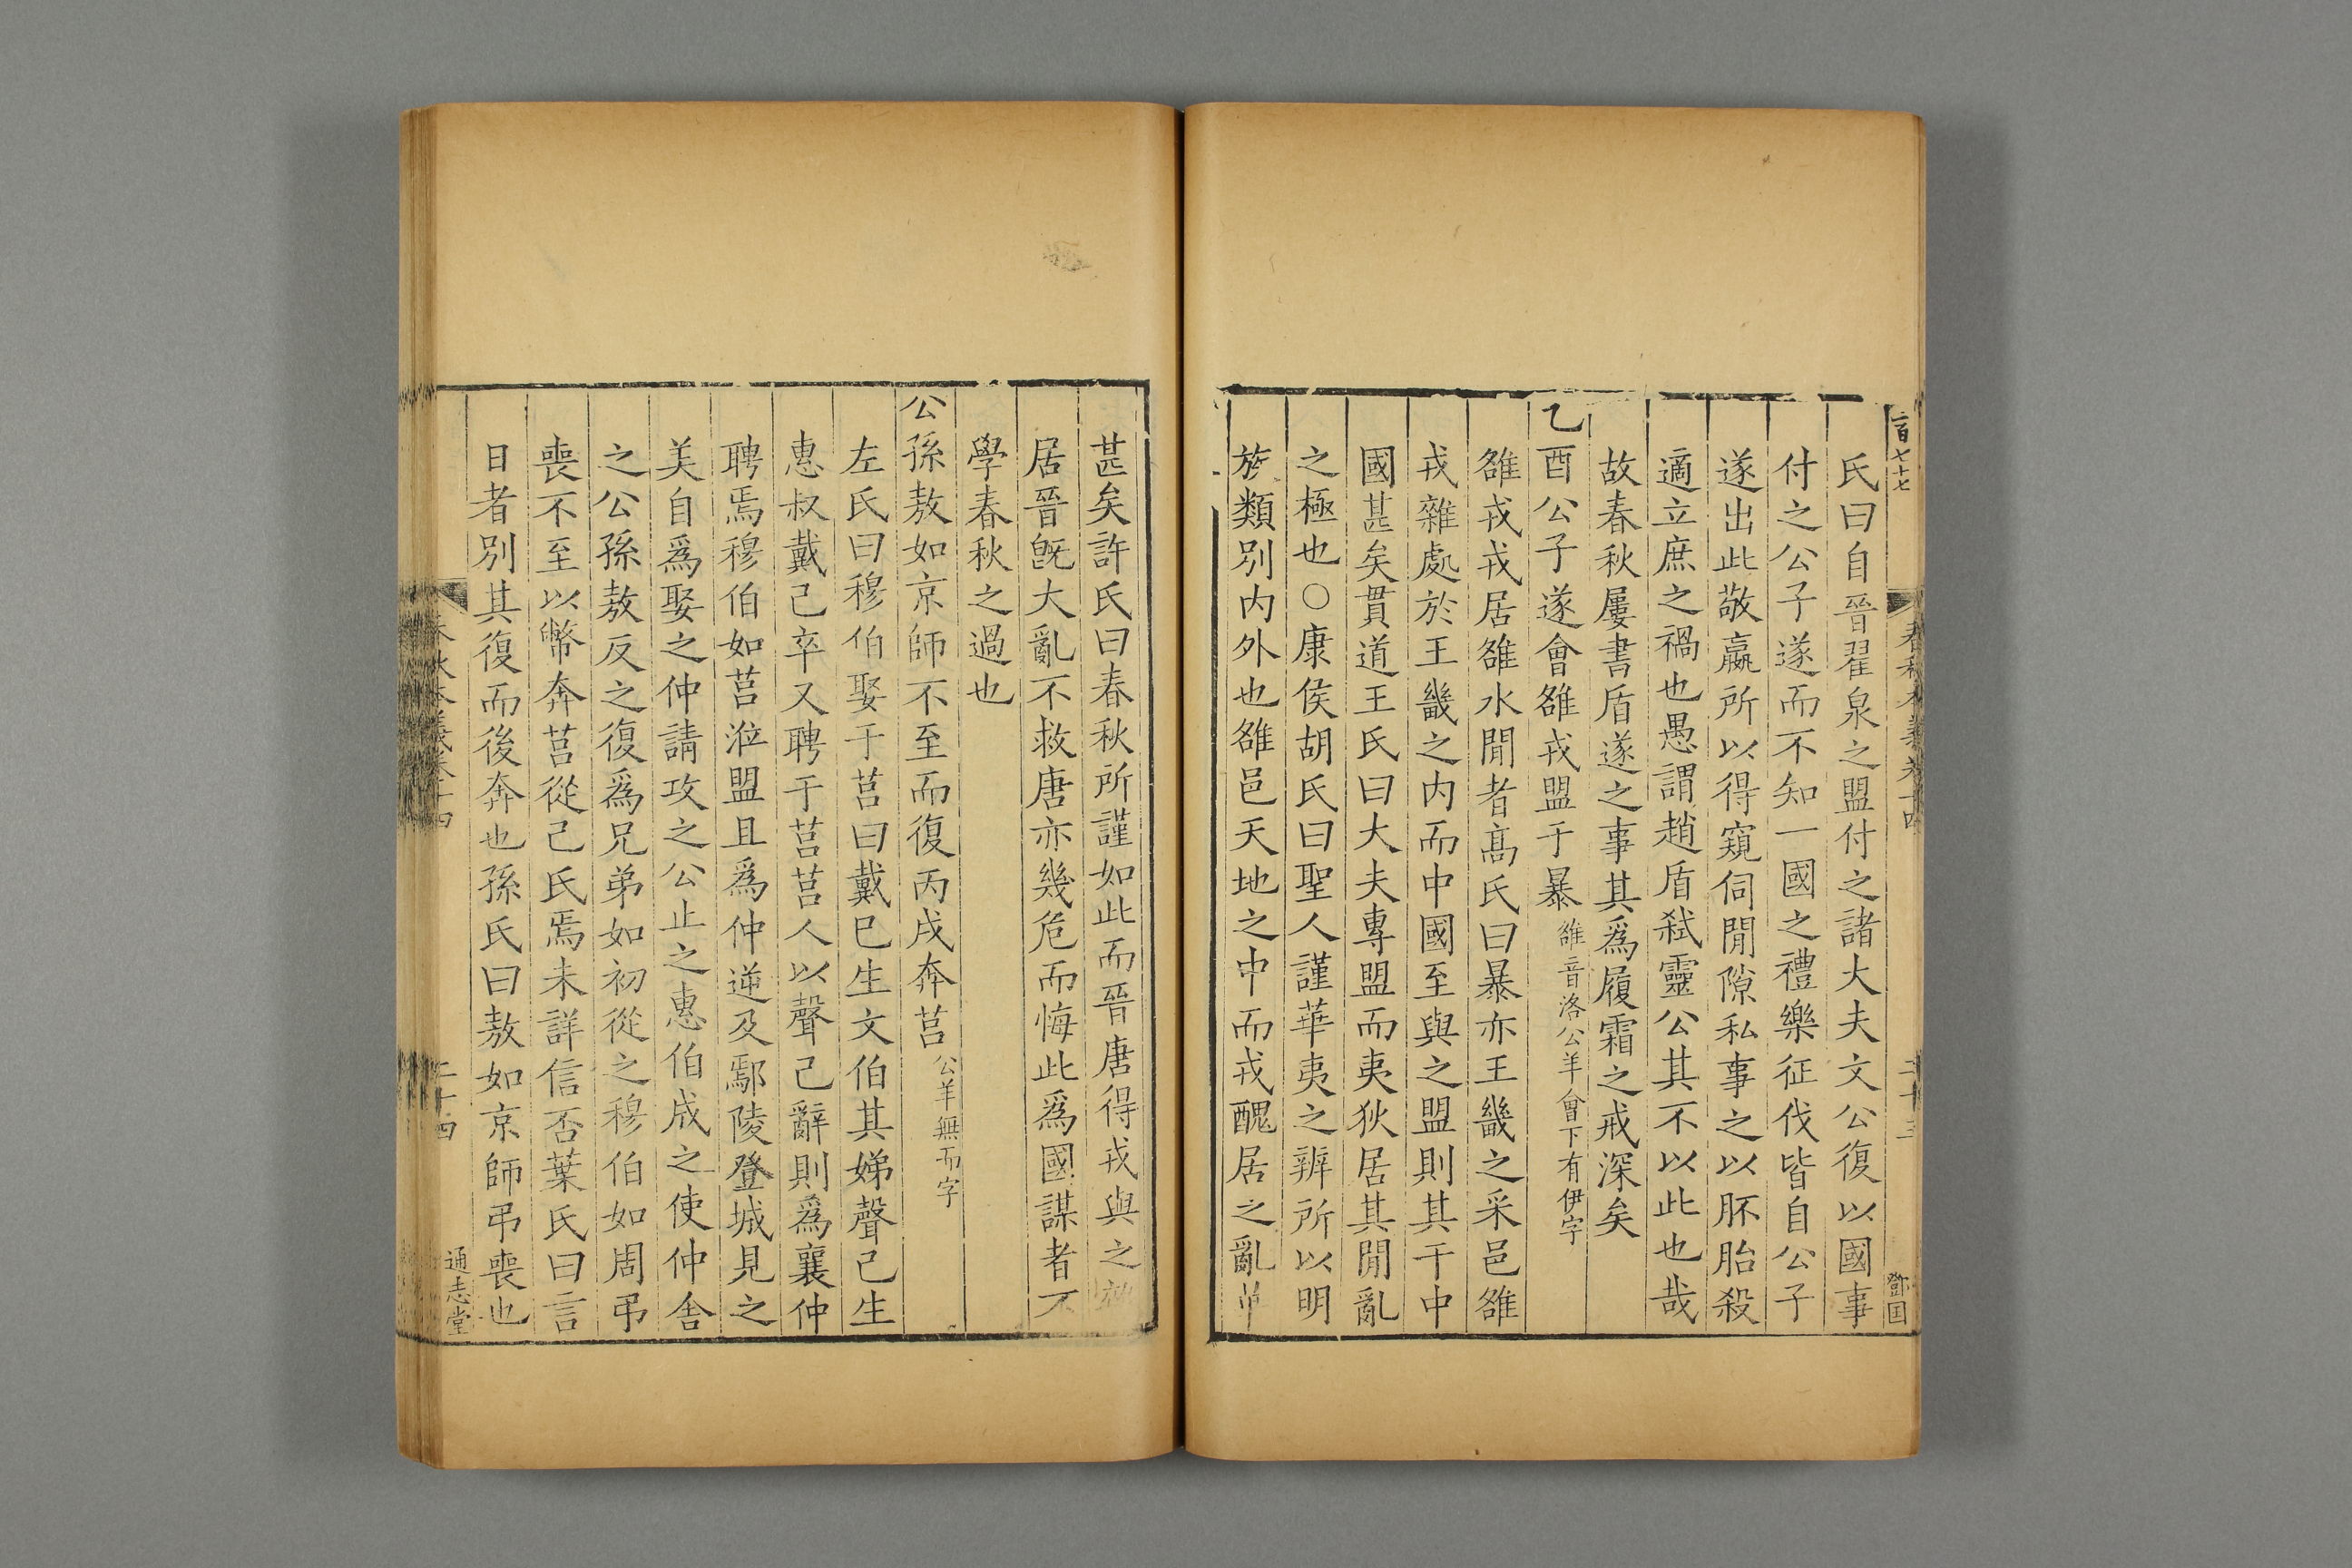 氏曰自晉翟泉之盟付之諸大夫文公復以國事
付之公子遂而不知一國之禮樂征伐皆自公子
遂出此敬嬴所以得窺伺閒隙私事之以胚胎殺
適立庶之禍也愚謂趙盾弑靈公其不以此也哉
故春秋屢書盾遂之事其爲履霜之戒深矣
乙酉公子遂會雒戎盟于暴雒音洛公羊會下有伊字
雒戎戎居雒水閒者高氏曰暴亦王畿之采邑雒
戎雜處於王畿之内而中國至與之盟則其干中
國甚矣貫道王氏曰大夫專盟而夷狄居其閒亂
之極也○康侯胡氏曰聖人謹華夷之辨所以明
族類別内外也雒邑天地之中而戎醜居之亂華
甚矣許氏曰春秋所謹如此而晉唐得戎與之
居晉旣大亂不救唐亦幾危而悔此爲國謀者不
學春秋之過也
公孫敖如京師不至而復丙戌奔莒公羊無而字
左氏曰穆伯娶于莒曰戴已生文伯其娣聲己生
惠叔戴己卒又聘于莒莒人以聲己辭則爲襄仲
聘焉穆伯如莒涖盟且爲仲逆及鄢陵登城見之
美自爲娶之仲請攻之公止之惠伯成之使仲舍
之公孫敖反之復爲兄弟如初從之穆伯如周弔
喪不至以幣奔莒從己氏焉未詳信否葉氏曰言
日者別其復而後奔也孫氏曰敖如京師弔喪也
春秋本義卷十四
二十四
通志堂